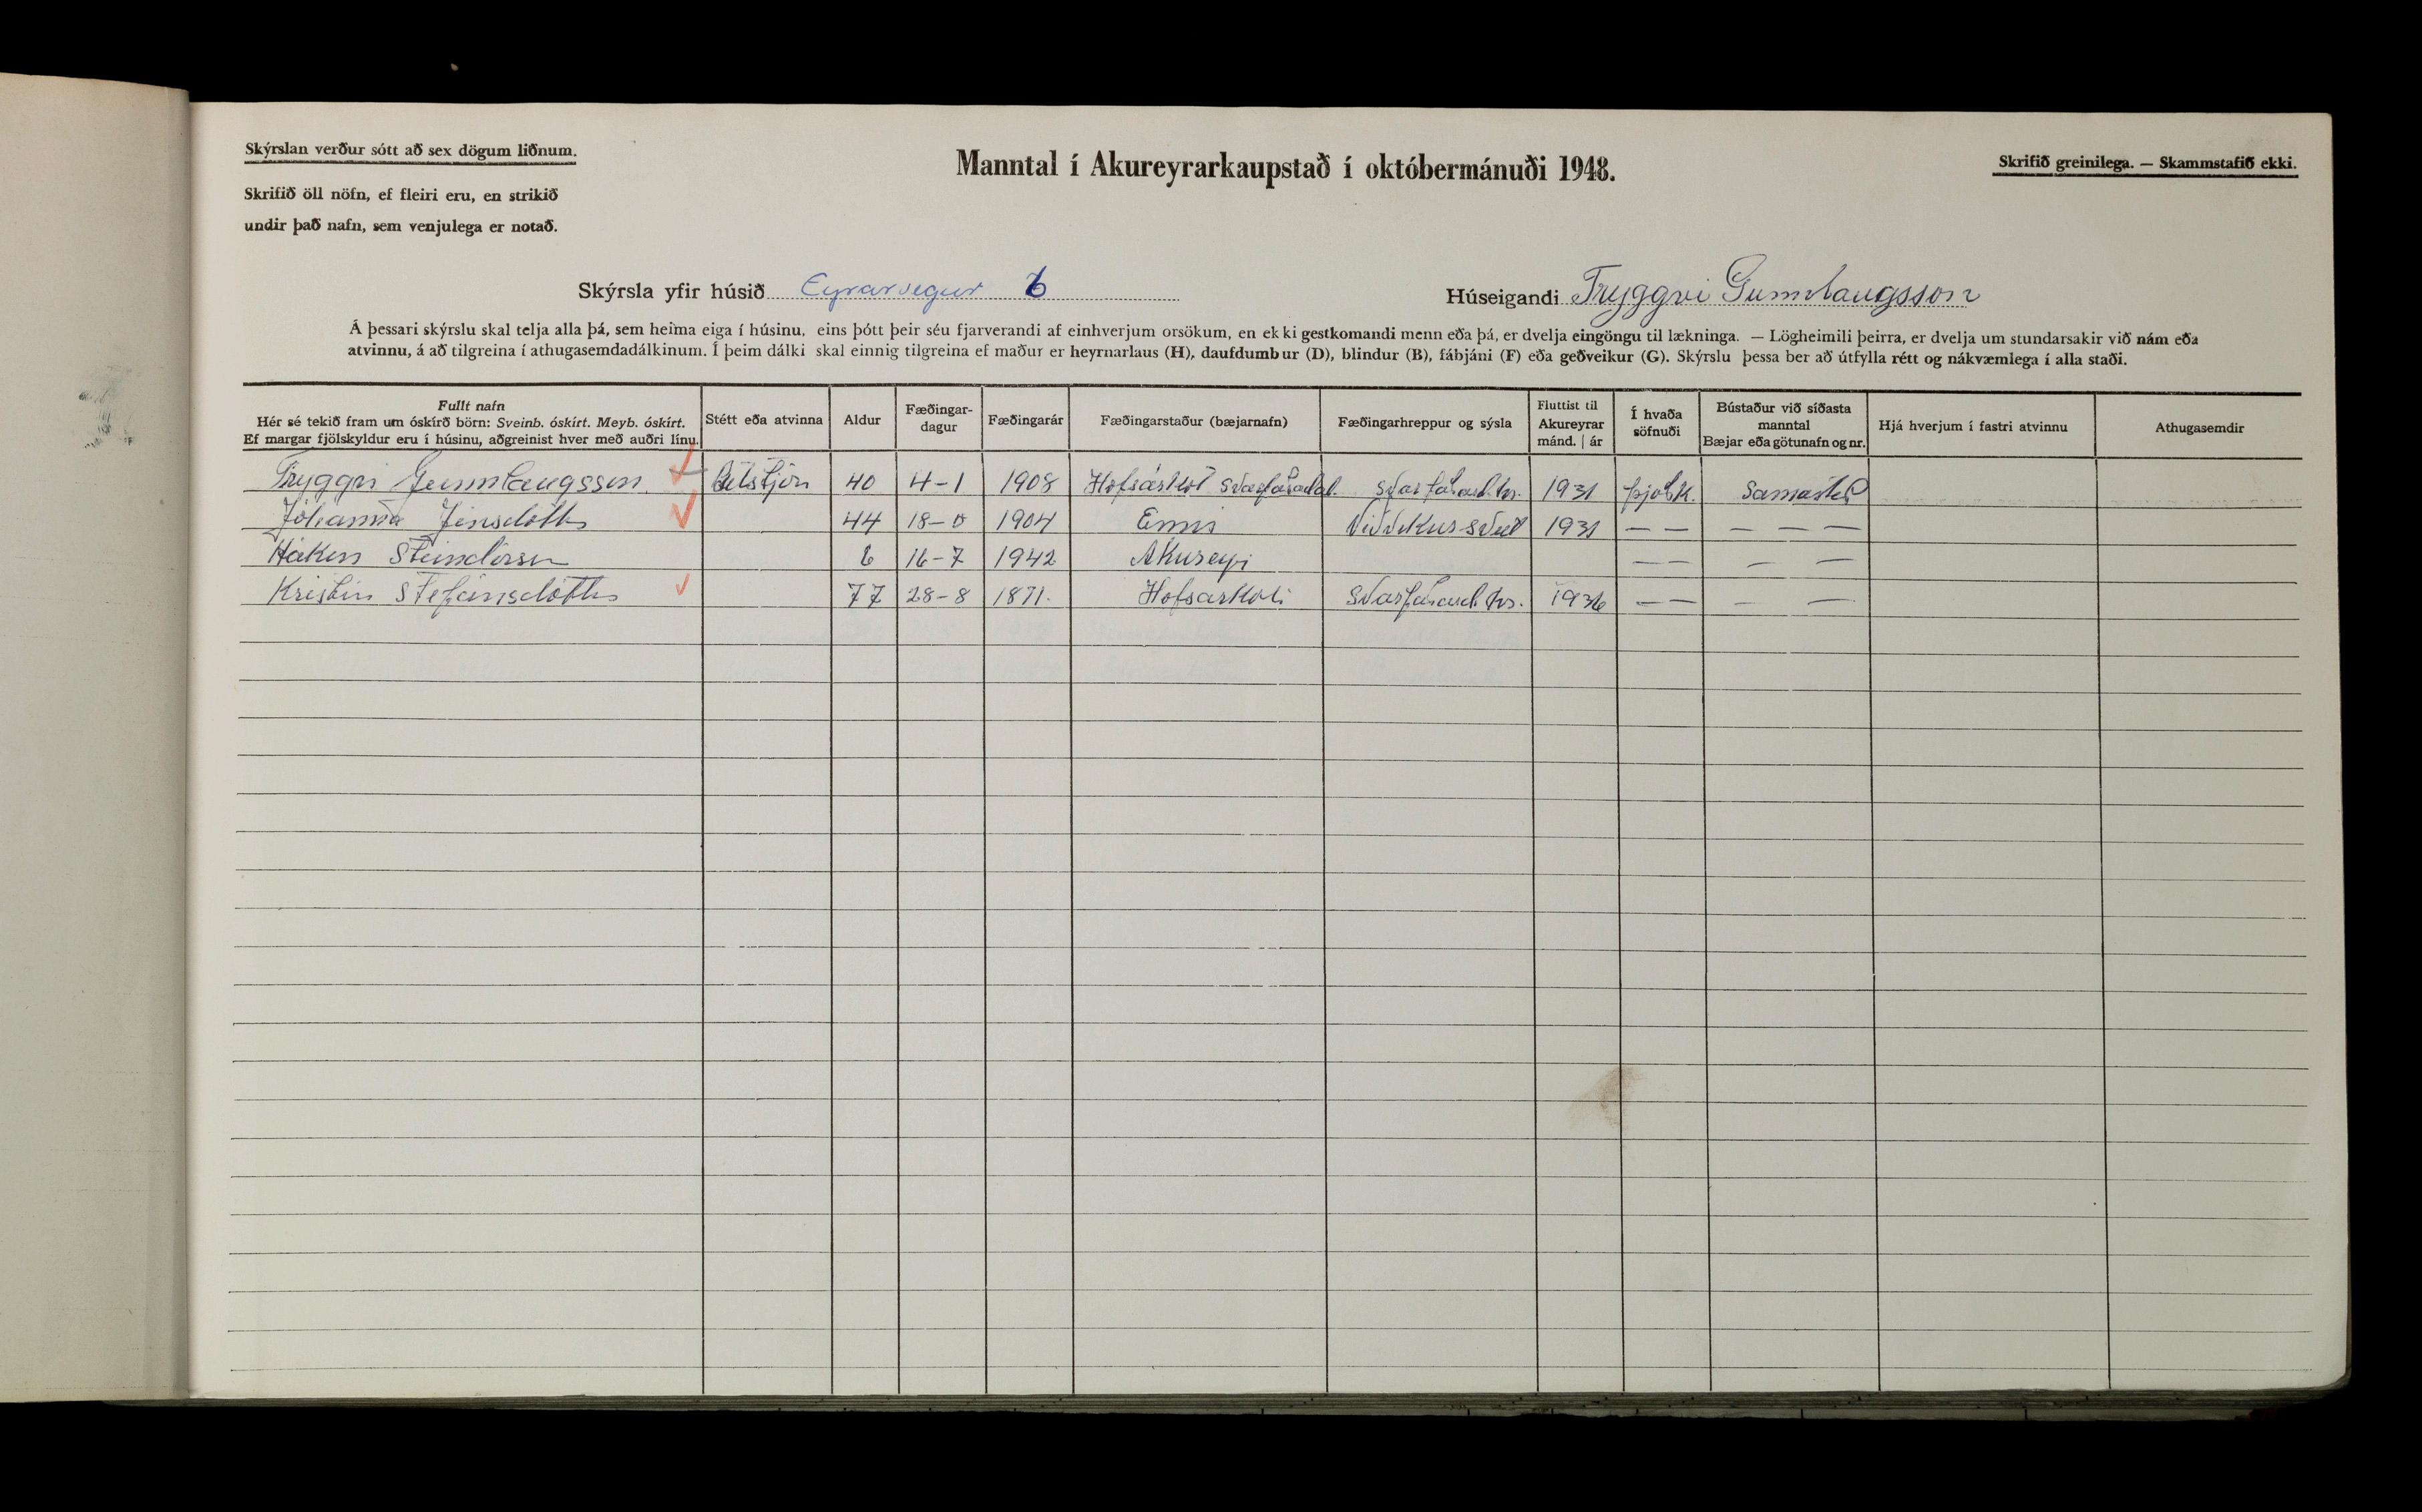 Skýrslan verður sótt að sex dögum liðnum.
Skrifið öll nöfn, ef fleiri eru, en strikið
undir það nafn, sem venjulega er notað.
Manntal í Akureyrarkaupstað í októbermánuði 1948.
Skrifið greinilega. — Skammstafið ekki.
Skýrsla yfir húsið Eyrarvegur 6
Húseigandi Tryggvi Gunnlaugsson
Á þessari skýrslu skal telja alla þá, sem heima eiga í húsinu, eins þótt þeir séu fjarverandi af einhverjum orsökum, en ekki gestkomandi menn eða þá, er dvelja eingöngu til lækninga. — Lögheimili þeirra, er dvelja um stundarsakir við nám eða
atvinnu, á að tilgreina í athugasemdadálkinum. Í þeim dálki skal einnig tilgreina ef maður er heyrnarlaus (H), daufdumbur (D), blindur (B), fábjáni (F) eða geðveikur (G). Skýrslu þessa ber að útfylla rétt og nákvæmlega í alla staði.
Fullt nafn
Hér sé tekið fram um óskírð börn: Sveinb. óskírt. Meyb. óskírt.
Ef margar fjölskyldur eru í húsinu, aðgreinist hver með auðri línu.
Stétt eða atvinna
Aldur
Fæðingar-
dagur
Fæðingarár
Fæðingarstaður (bæjarnafn)
Fæðingarhreppur og sýsla
Fluttist til
Akureyrar
mánd. | ár
Í hvaða
söfnuði
Bústaður við síðasta
manntal
Bæjar eða götunafn og nr.
Hjá hverjum í fastri atvinnu
Athugasemdir
Tryggvi Gunnlaugsson Bílstjóri 40 4-1 1908 Hofsárkot Svarfaðadal. Svarfaðard.hr. 1931 þjóðk. Samastað
Jóhanna Jónsdóttir 44 1904 Enni Viðvikursveit 1931 — — — — —
Hákon Steindórsson 6 16-7 1942 Akureyri — — — —
Kristín Stefánsdóttir 77 28-8 1871. Hofsárkoti Svarfaðard.hr. 1936 — — — —